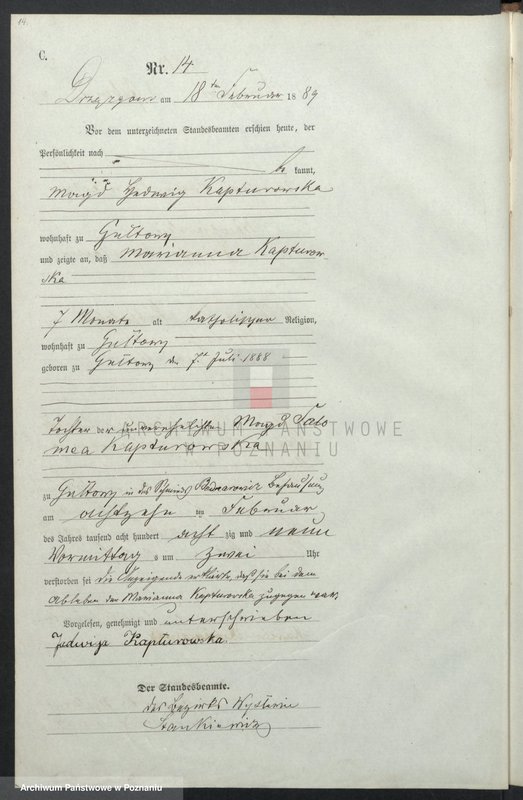 14.
C.
Nr. 14
am 18ten Februar 1889
Vor dem unterzeichneten Standesbeamten erschien heute, der
Persönlichkeit nach
be kannt,
Magd Hedwig Kapturowska
wohnhaft zu Gultowy
und zeigte an, daß Marianna Kapturow-
ska
7 Monate alt katholischer Religion,
wohnhaft zu Gultowy
geboren zu Gultowy den 7ten Juli 1888
Tochter der unverehelichten Magd Salo
mea Kapturowska
ARCHIWUM PAŃSTWOWE
W POZNANIU
zu Gultowy in des Schmieds Behausung
am achtzehn ten Februar
des Jahres tausend acht hundert acht zig und neun
Vormittag s um zwei Uhr
verstorben sei die Anzeigende erklärte, daß sie bei dem
Ableben der Marianna Kapturowska zugegen war.
Vorgelesen, genehmigt und unterschrieben
Jadwiga Kapturowska.
Der Standesbeamte.
des Bezirks
Stankiewicz
Archiwum Państwowe w Poznaniu